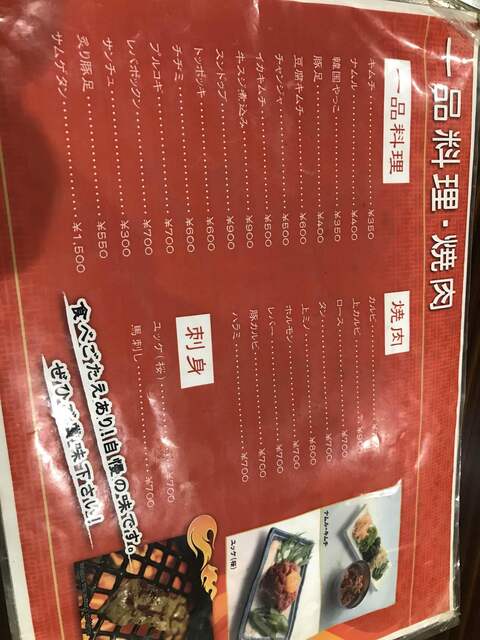 一品料理・焼肉
一品料理
キムチ ¥350
ナムル ¥400
韓国やっこ ¥350
豚足 ¥400
豆腐キムチ ¥600
チャンジャ ¥500
イカキムチ ¥500
牛スジ煮込み ¥900
スンドゥブ ¥900
トッポッキ ¥600
チヂミ ¥600
プルコギ ¥700
レバポックン ¥700
サンチュ ¥300
炙り豚足 ¥550
サムゲタン ¥1,500
焼肉
カルビ
上カルビ
ロース ¥700
タン ¥700
上ミノ ¥800
ホルモン ¥700
レバー ¥700
豚カルビ ¥700
ハラミ ¥700
刺身
ユッケ(桜) ¥700
馬刺し ¥700
食べごたえあり!!自慢の味です。
ぜひご賞味下さい!
ナムル・キムチ
ユッケ(桜)